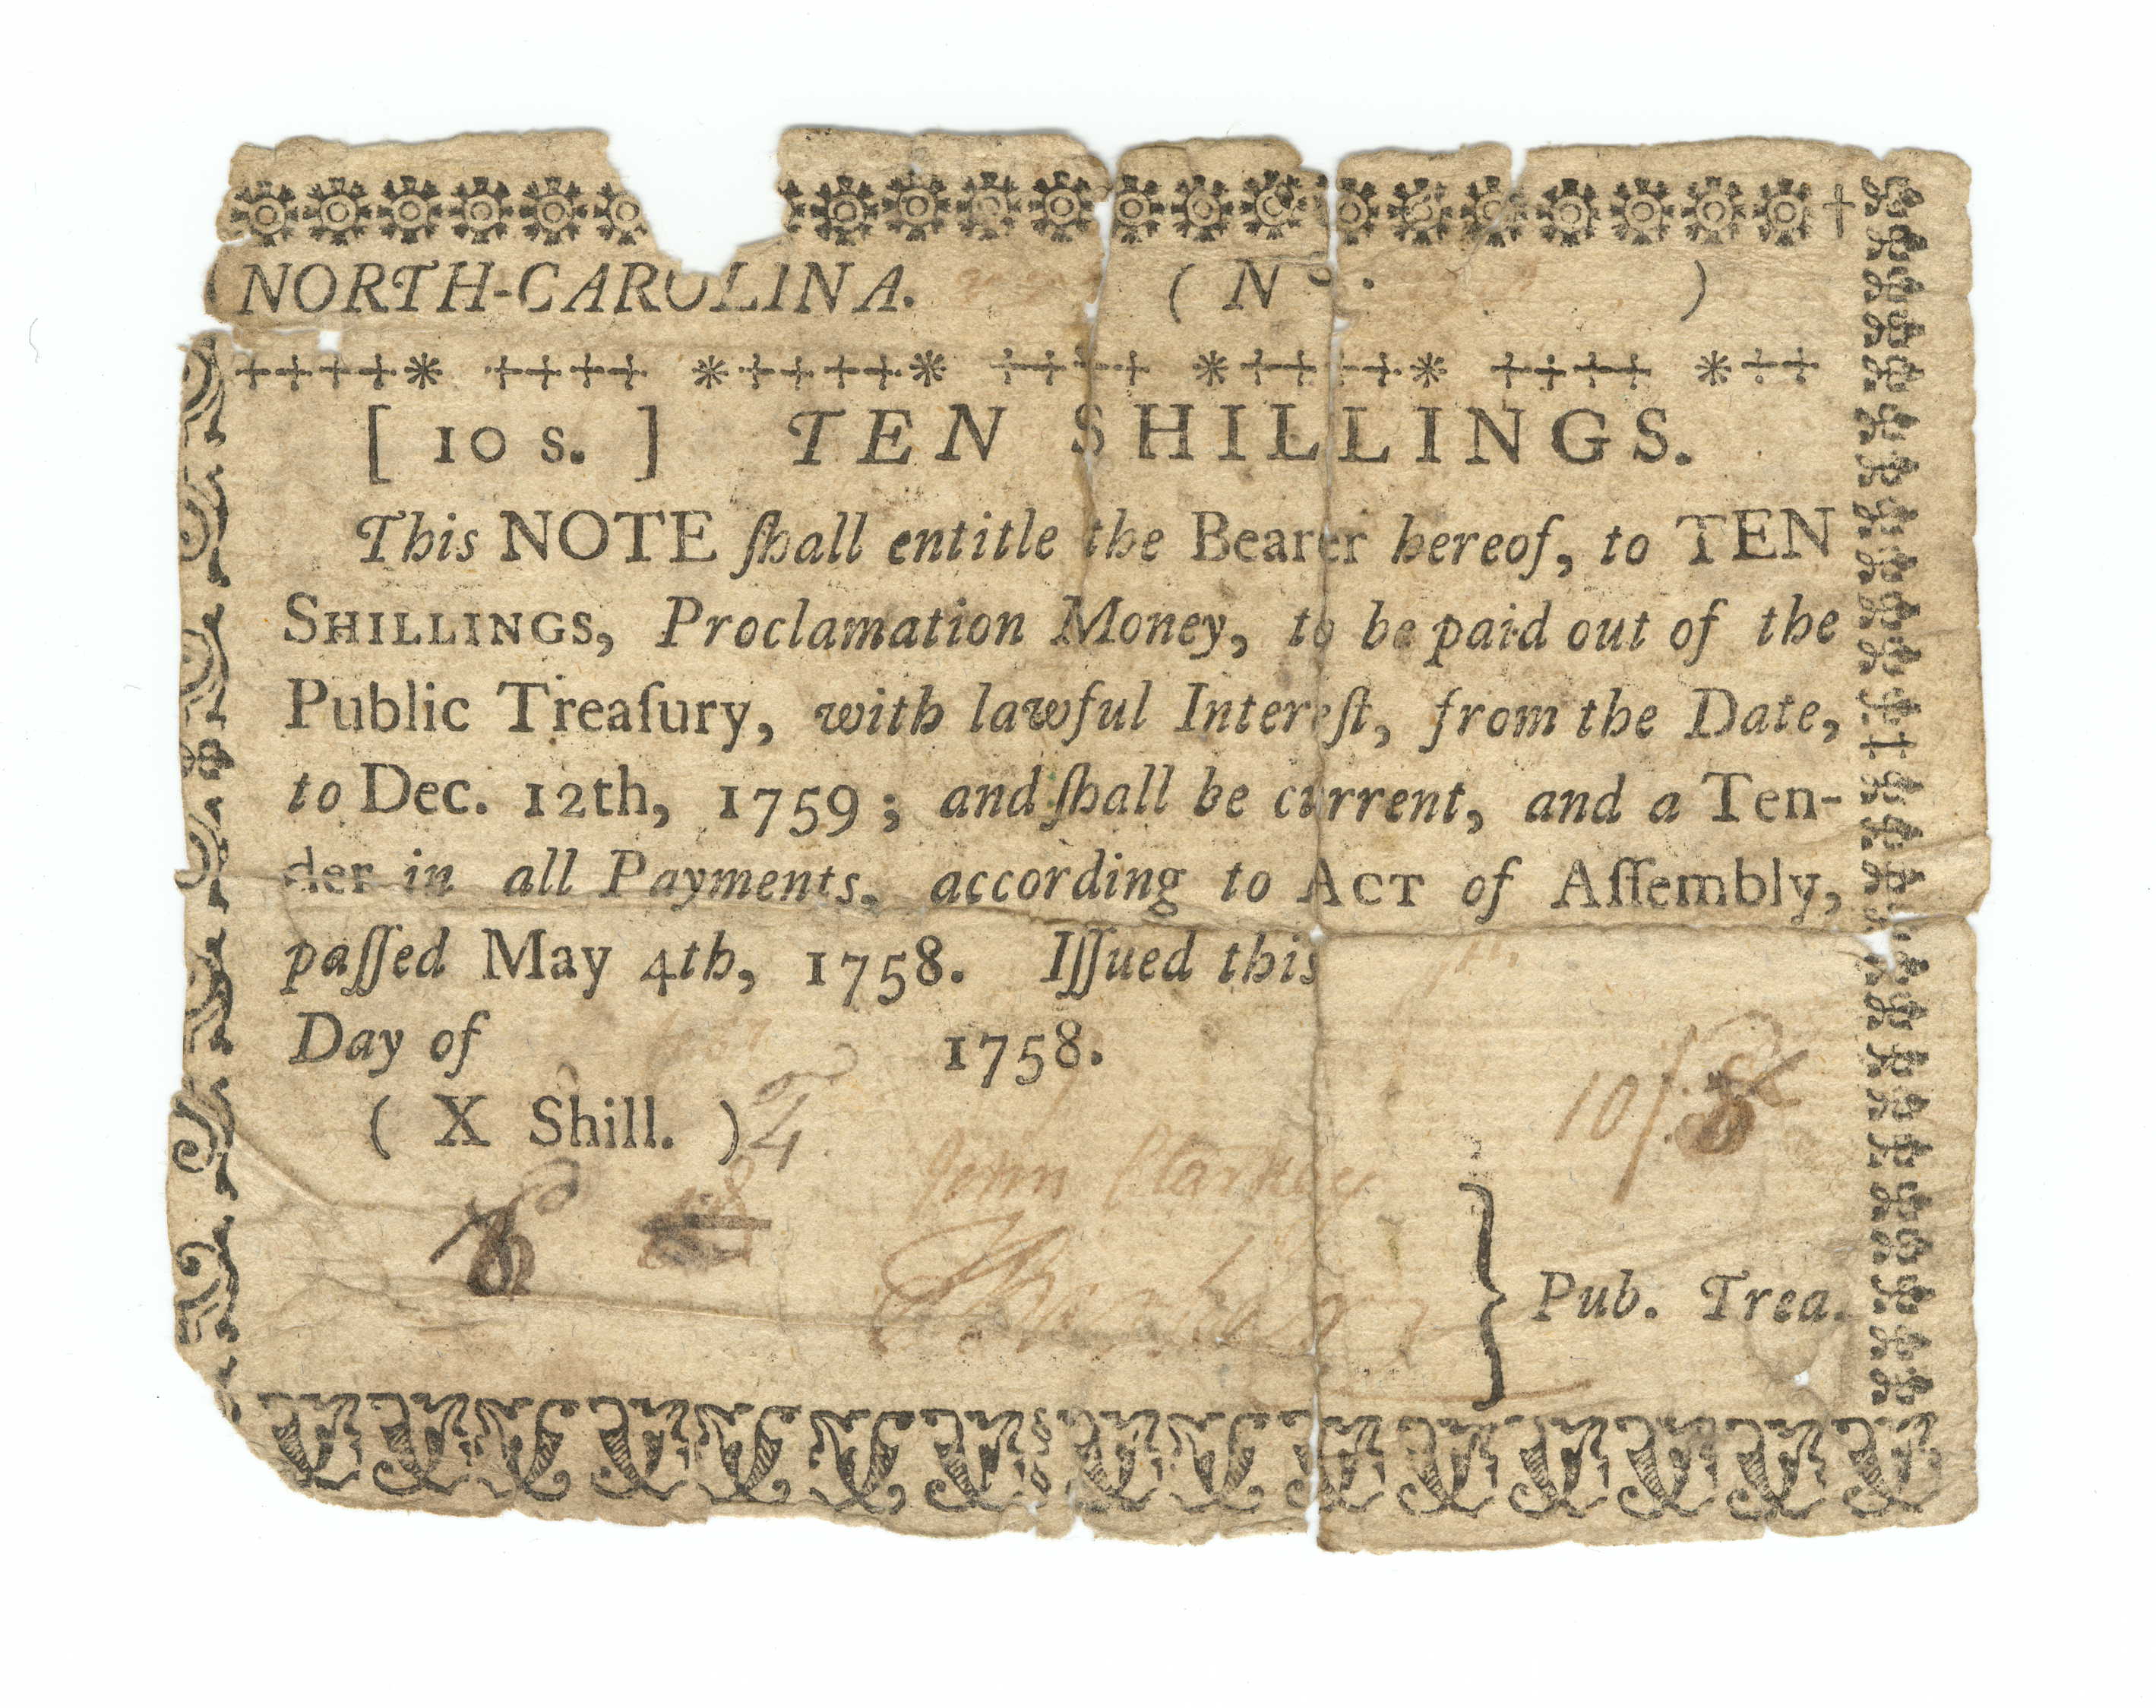 NORTH-CAROLINA. ( No. )
[ 10 s. ] TEN SHILLINGS.
This NOTE ſhall entitle the Bearer hereof, to TEN
SHILLINGS, Proclamation Money, to be paid out of the
Public Treaſury, with lawful Intereſt, from the Date,
to Dec. 12th, 1759 ; and ſhall be current, and a Ten-
der in all Payments, according to ACT of Aſſembly,
paſſed May 4th, 1758. Iſſued this
Day of 1758.
( X Shill. )
10/
John Starkey
Pub. Trea.